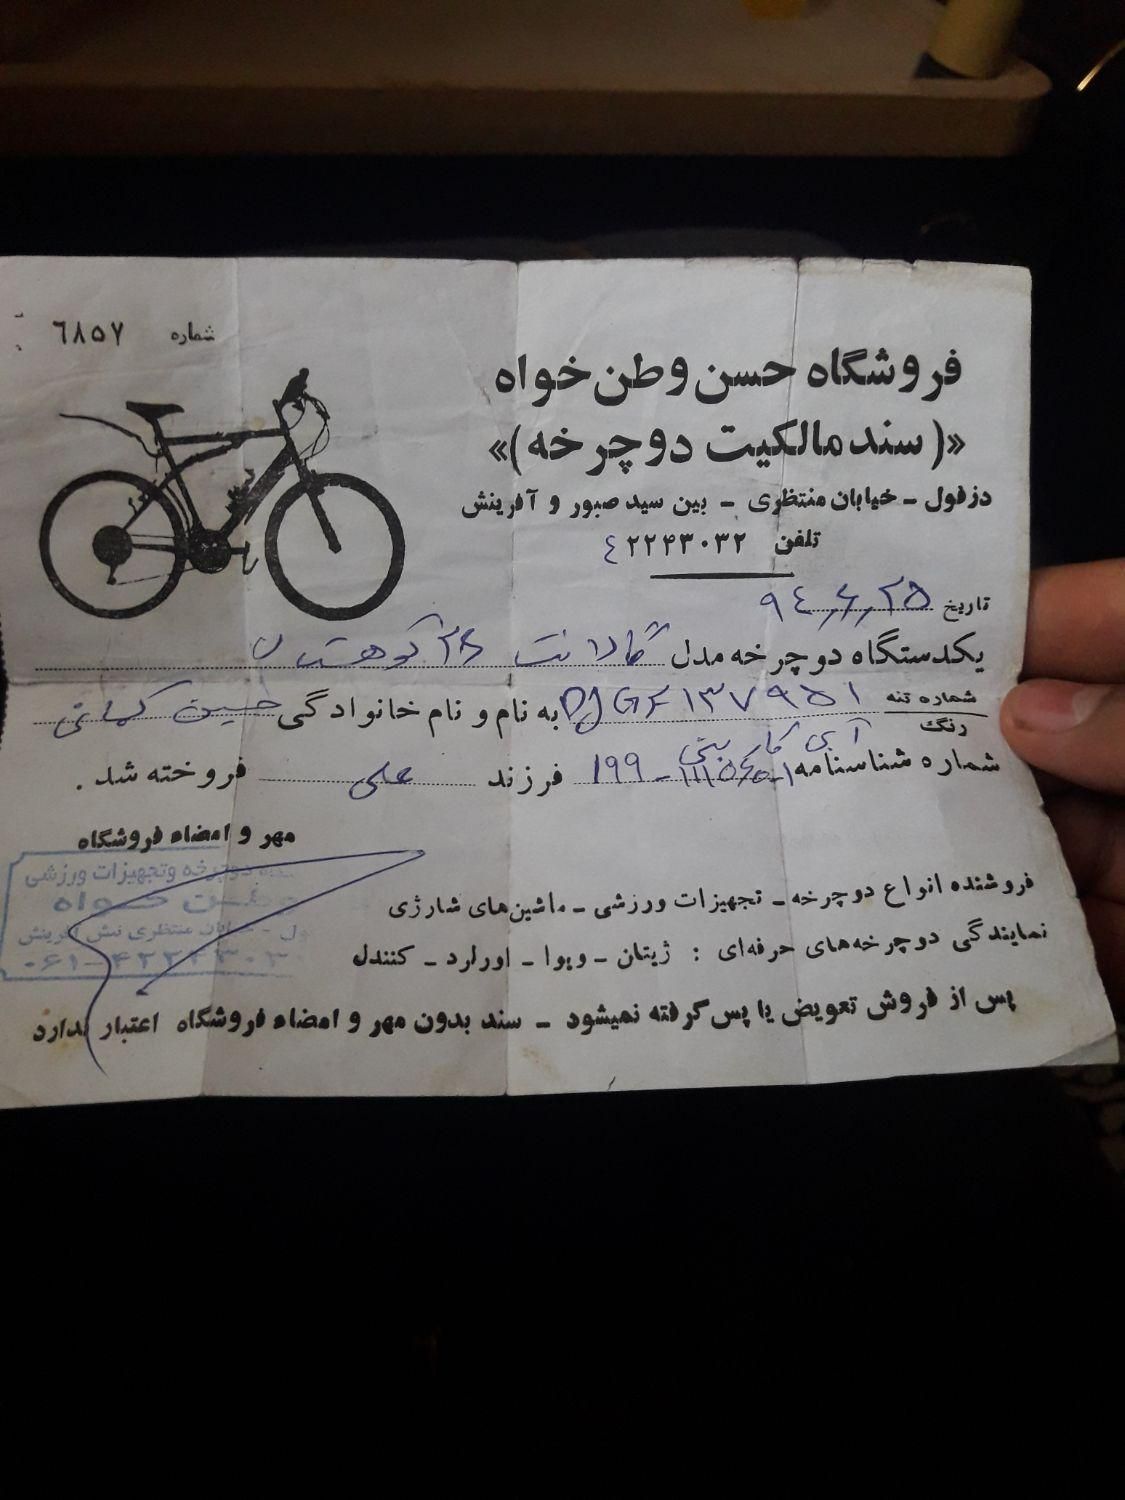 شماره ٦٨٥٧
فروشگاه حسن وطن‌خواه
«(سند مالکیت دوچرخه)»
دزفول - خیابان منتظری - بین سید صبور و آفرینش
تلفن ٤٢٢٤٣٠٣٢
تاریخ ٩٤,٦,٢٥
یکدستگاه دوچرخه مدل گالانت ٢٦ کوهستان
شماره تنه DJGF١٣٧٩٥١ به نام و نام خانوادگی حسین کمائی
رنگ آبی کاربنی
شماره شناسنامه ١٩٩- فرزند علی فروخته شد.
مهر و امضاء فروشگاه
دوچرخه وتجهیزات ورزشی
وطن خواه
خیابان منتظری نبش آفرینش
فروشنده انواع دوچرخه - تجهیزات ورزشی - ماشین‌های شارژی
نمایندگی دوچرخه‌های حرفه‌ای : ژیتان - ویوا - اورلرد - کنندل
پس از فروش تعویض یا پس گرفته نمیشود - سند بدون مهر و امضاء فروشگاه اعتبار ندارد